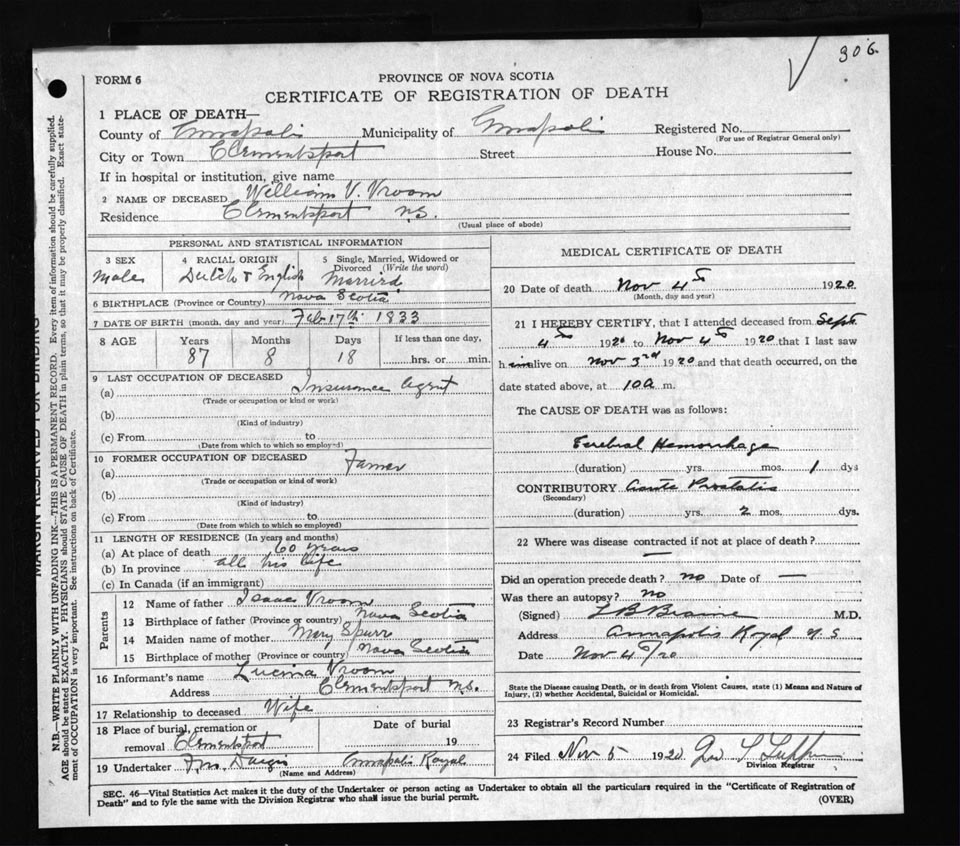 306
FORM 6
PROVINCE OF NOVA SCOTIA
CERTIFICATE OF REGISTRATION OF DEATH
1 PLACE OF DEATH—
County of Annapolis Municipality of Annapolis Registered No.
(For use of Registrar General only)
City or Town Clementsport Street House No.
If in hospital or institution, give name
2 NAME OF DECEASED William V. Vroom
Residence Clementsport N.S.
(Usual place of abode)
PERSONAL AND STATISTICAL INFORMATION
3 SEX 4 RACIAL ORIGIN 5 Single, Married, Widowed or Divorced (Write the word)
Male Dutch & English Married
6 BIRTHPLACE (Province or Country) Nova Scotia
7 DATE OF BIRTH (month, day and year) Feb. 17th 1833
8 AGE Years Months Days If less than one day,
87 8 18 hrs. or min.
9 LAST OCCUPATION OF DECEASED
(a) Insurance Agent
(Trade or occupation or kind or work)
(b)
(Kind of industry)
(c) From to
(Date from which to which so employed)
10 FORMER OCCUPATION OF DECEASED
(a) Farmer
(Trade or occupation or kind of work)
(b)
(Kind of industry)
(c) From to
(Date from which to which so employed)
11 LENGTH OF RESIDENCE (In years and months)
(a) At place of death 60 years
(b) In province all his life
(c) In Canada (if an immigrant)
Parents
12 Name of father Isaac Vroom
13 Birthplace of father (Province or country) Nova Scotia
14 Maiden name of mother Mary Spurr
15 Birthplace of mother (Province or country) Nova Scotia
16 Informant's name Lucina Vroom
Address Clementsport N.S.
17 Relationship to deceased Wife
18 Place of burial, cremation or Date of burial
removal Clementsport 19
19 Undertaker Annapolis Royal
(Name and Address)
MEDICAL CERTIFICATE OF DEATH
20 Date of death Nov 4th 1920
(Month, day and year)
21 I HEREBY CERTIFY, that I attended deceased from Sept
4th 1920 to Nov 4th 1920 that I last saw
him alive on Nov 3rd 1920 and that death occurred, on the
date stated above, at 10 a m.
The CAUSE OF DEATH was as follows:
Cerebral Hemorrhage
(duration) yrs. mos. 1 dys
CONTRIBUTORY Acute Prostatis
(Secondary)
(duration) yrs. 2 mos. dys.
22 Where was disease contracted if not at place of death? —
Did an operation precede death? no Date of —
Was there an autopsy? no
(Signed) L B Braine M.D.
Address Annapolis Royal N.S
Date Nov 4th/20
State the Disease causing Death, or in death from Violent Causes, state (1) Means and Nature of
Injury, (2) whether Accidental, Suicidal or Homicidal.
23 Registrar's Record Number
24 Filed Nov 5 1920
Division Registrar
SEC. 46—Vital Statistics Act makes it the duty of the Undertaker or person acting as Undertaker to obtain all the particulars required in the "Certificate of Registration of
Death" and to fyle the same with the Division Registrar who shall issue the burial permit.
(OVER)
MARGIN RESERVED FOR BINDING
N.B.—WRITE PLAINLY WITH UNFADING INK—THIS IS A PERMANENT RECORD. Every item of information should be carefully supplied.
AGE should be stated EXACTLY. PHYSICIANS should STATE CAUSE OF DEATH in plain terms, so that it may be properly classified. Exact state-
ment of OCCUPATION is very important. See instructions on back of Certificate.